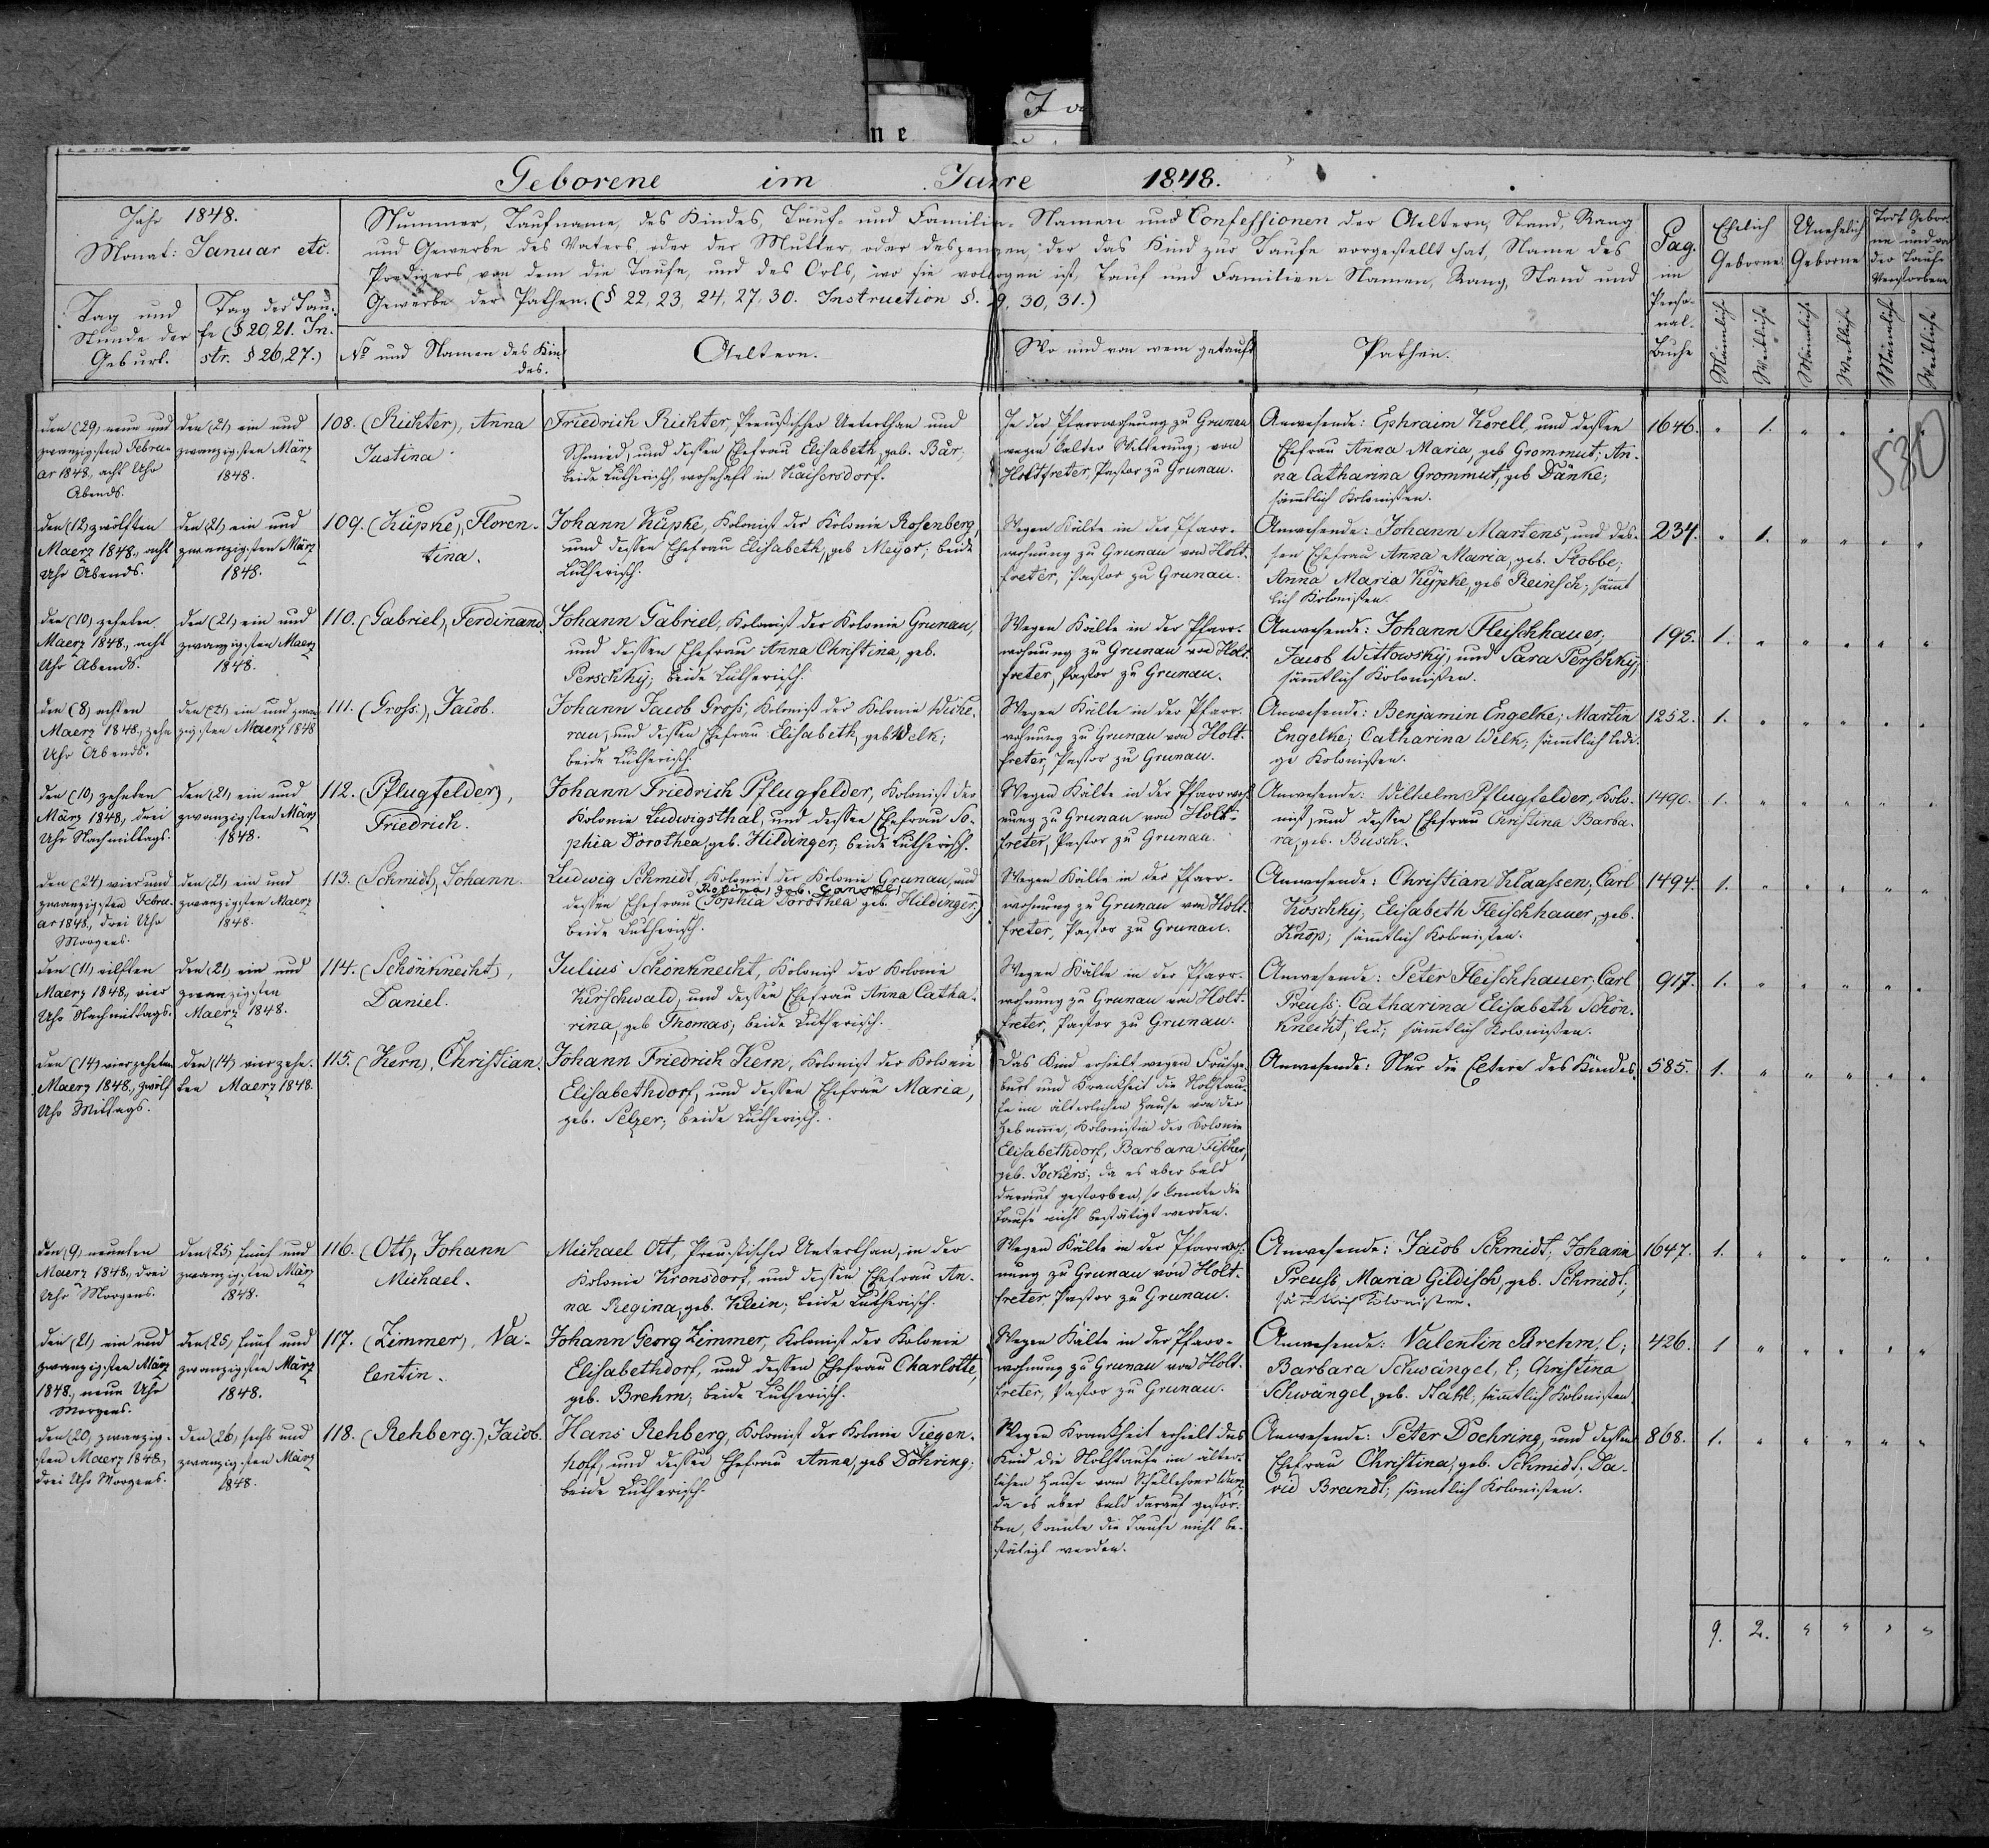 n e
J v
Geborene im Jahre 1848.
Jahr 1848.
Monat: Januar etc.
Tag und
Stunde der
Geburt.
Tag der Tau-
fe (§ 20, 21. In-
str. § 26, 27.)
Nummer, Taufname, des Kindes Tauf- und Familien-Namen und Confessionen der Aeltern, Stand, Rang
und Gewerbe des Vaters oder der Mutter, oder desjenigen, der das Kind zur Taufe vorgestellt hat, Name des
Predigers, von dem die Taufe, und des Orts, wo sie vollzogen ist, Tauf und Familien-Namen, Rang, Stand und
Gewerbe der Pathen. (§ 22, 23, 24, 27, 30. Instruction §. 29, 30, 31.)
No und Namen des Kin-
des.
Aeltern.
Wo und von wem getauft
Pathen.
Pag.
im
Perso-
nal-
Buche
Ehelich
Geborne
Unehelich
Geborne
Todt Gebor-
ne und vor
der Taufe
Verstorbene
Männliche
Weibliche
Männliche
Weibliche
Männliche
Weibliche
530
den (29) neun und
zwanzigsten Febru-
ar 1848, acht Uhr
Abends.
den (21) ein und
zwanzigsten März
1848.
108. (Richter), Anna
Justina.
Friedrich Richter, Preußischer Unterthan und
Schmied, und dessen Ehefrau Elisabeth, geb. Bär,
beide Lutherisch, wohnhaft in Kaisersdorf.
In der Pfarrwohnung zu Grunau
wegen kalter Witterung, von
Holtfreter, Pastor zu Grunau.
Anwesende: Ephraim Korell, und dessen
Ehefrau Anna Maria, geb Grommut; An-
na Catharina Grommut, geb Dänke;
sämtlich Kolonisten.
1646. " 1. " " " "
den (12) zwölften
Maerz 1848, acht
Uhr Abends.
den (21) ein und
zwanzigsten März
1848.
109. (Küpke), Floren-
tina.
Johann Küpke, Kolonist der Kolonie Rosenberg,
und dessen Ehefrau Elisabeth, geb Meyer; beide
Lutherisch.
Wegen Kälte in der Pfarr-
wohnung zu Grunau von Holt-
freter, Pastor zu Grunau.
Anwesende: Johann Martens, und des-
sen Ehefrau Anna Maria, geb. Stobbe;
Anna Maria Kypke, geb Reinsch; sämt
lich Kolonisten.
234. " 1. " " " "
den (10) zehnten
Maerz 1848, acht
Uhr Abends.
den (21) ein und
zwanzigsten Maerz
1848.
110. (Gabriel), Ferdinand.
Johann Gabriel, Kolonist der Kolonie Grunau,
und dessen Ehefrau Anna Christina, geb.
Perschky; beide Lutherisch.
Wegen Kälte in der Pfarr-
wohnung zu Grunau von Holt-
freter, Pastor zu Grunau.
Anwesende: Johann Fleischhauer;
Jacob Wittowsky, und Sara Perschky;
sämmtlich Kolonisten.
195. 1. " " " " "
den (8) achten
Maerz 1848, zehn
Uhr Abends.
den (21) ein und zwan-
zigsten Maerz 1848
111. (Gross.), Jacob.
Johann Jacob Gross, Kolonist der Kolonie Wicke-
rau, und dessen Ehefrau Elisabeth, geb Welk;
beide Lutherisch.
Wegen Kälte in der Pfarr-
wohnung zu Grunau von Holt-
freter, Pastor zu Grunau.
Anwesende: Benjamin Engelke; Martin
Engelke; Catharina Welk; sämmtlich ledi-
ge Kolonisten.
1252. 1. " " " " "
den (10) zehnten
März 1848, drei
Uhr Nachmittags.
den (21) ein und
zwanzigsten März
1848.
112. (Pflugfelder),
Friedrich.
Johann Friedrich Pflugfelder, Kolonist der
Kolonie Ludwigsthal, und dessen Ehefrau So-
phia Dorothea, geb. Hildinger; beide Lutherisch.
Wegen Kälte in der Pfarrwoh-
nung zu Grunau von Holt-
freter, Pastor zu Grunau.
Anwesende: Wilhelm Pflugfelder, Kolo-
nist, und dessen Ehefrau Christina Barba-
ra, geb. Busch.
1490. 1. " " " " "
den (24) vier und
zwanzigsten Febru-
ar 1848, drei Uhr
Morgens.
den (21) ein und
zwanzigsten Maerz
1848.
113. (Schmidt), Johann.
Ludwig Schmidt, Kolonist der Kolonie Grunau, und
Rosina, geb. Ganske,
dessen Ehefrau (Sophia Dorothea geb. Hildinger)
beide Lutherisch.
Wegen Kälte in der Pfarr-
wohnung zu Grunau von Holt-
freter, Pastor zu Grunau.
Anwesende: Christian Klaassen; Carl
Koschky; Elisabeth Fleischhauer, geb.
Knop; sämmtlich Kolonisten.
1494. 1. " " " " "
den (11) eilften
Maerz 1848, vier
Uhr Nachmittags.
den (21) ein und
zwanzigsten
Maerz 1848.
114. (Schönknecht),
Daniel.
Julius Schönknecht, Kolonist der Kolonie
Kirschwald, und dessen Ehefrau Anna Catha-
rina, geb Thomas; beide Lutherisch.
Wegen Kälte in der Pfarr-
wohnung zu Grunau von Holt-
freter, Pastor zu Grunau.
Anwesende: Peter Fleischhauer; Carl
Preuss; Catharina Elisabeth Schön-
knecht, led; sämmtlich Kolonisten.
917. 1. " " " " "
den (14) vierzehnten
Maerz 1848, zwölf
Uhr Mittags.
den (14) vierzehn-
ten Maerz 1848.
115. (Kern), Christian.
Johann Friedrich Kern, Kolonist der Kolonie
Elisabethdorf, und dessen Ehefrau Maria,
geb. Pelzer; beide Lutherisch.
Das Kind erhielt wegen Frühge-
burt und Krankheit die Nothtau-
fe im älterlichen Hause von der
Hebamme, Kolonistin der Kolonie
Elisabethdorf, Barbara Fischer,
geb. Jockers; da es aber bald
darauf gestorben, so konnte die
Taufe nicht bestätigt werden.
Anwesende: Nur die Eltern des Kindes.
585. 1. " " " " "
den (9) neunten
Maerz 1848, drei
Uhr Morgens.
den (25) fünf und
zwanzigsten März
1848.
116. (Ott), Johann
Michael.
Michael Ott, Preußischer Unterthan, in der
Kolonie Kronsdorf, und dessen Ehefrau An-
na Regina, geb. Klein; beide Lutherisch.
Wegen Kälte in der Pfarrwoh-
nung zu Grunau von Holt-
freter, Pastor zu Grunau.
Anwesende: Jacob Schmidt; Johann
Preuss; Maria Gildisch, geb. Schmidt;
sämmtlich Kolonisten.
1647. 1. " " " " "
den (21) ein und
zwanzigsten März
1848, neun Uhr
Morgens.
den (25) fünf und
zwanzigsten März
1848.
117. (Zimmer), Va-
lentin.
Johann Georg Zimmer, Kolonist der Kolonie
Elisabethdorf, und dessen Ehefrau Charlotte,
geb. Brehm; beide Lutherisch.
Wegen Kälte in der Pfarr-
wohnung zu Grunau von Holt-
freter, Pastor zu Grunau.
Anwesende: Valentin Brehm, l;
Barbara Schwängel, l; Christina
Schwängel, geb. Stahl; sämmtlich Kolonisten
426. 1 " " " " "
den (20) zwanzig-
sten Maerz 1848,
drei Uhr Morgens.
den (26) sechs und
zwanzigsten März
1848.
118. (Rehberg.), Jacob.
Hans Rehberg, Kolonist der Kolonie Tiegen-
hoff, und dessen Ehefrau Anna, geb Döhring;
beide Lutherisch.
Wegen Krankheit erhielt das
Kind die Nothtaufe im älter-
lichen Hause vom Schullehrer
da es aber bald darauf gestor-
ben, konnte die Taufe nicht be-
stätigt werden.
Anwesende: Peter Doehring, und dessen
Ehefrau Christina, geb. Schmidt; Da-
vid Brandt; sämtlich Kolonisten.
868. 1. " " " " "
9. 2. " " " "